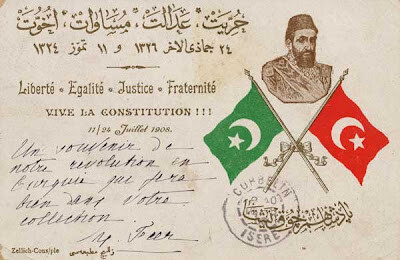 حریت ، عدالت ، مساوات ، اخوت
٢٤ جماذی الاخر ١٣٢٦ و ١١ تموز ١٣٢٤
Liberté * Egalité * Justice * Fraternité
VIVE LA CONSTITUTION !!!
11/24 Juillet 1908.
Un souvenir de
notre revolution en
Turquie qui fera
bien dans votre
collection.
پادشاهم چوق یشا
CORBELIN
ISERE
Zellich-Cons/ple